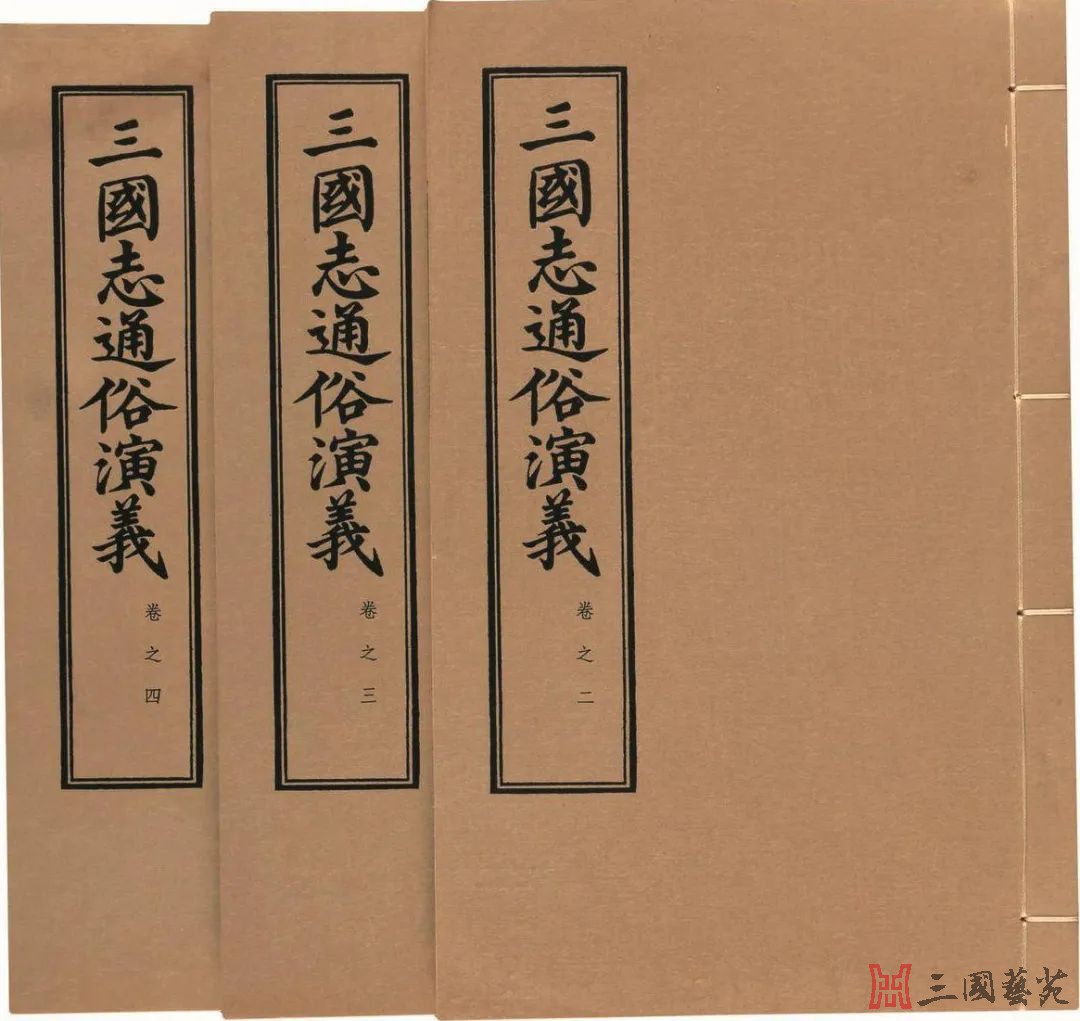 三國志通俗演義
卷之二
三國志通俗演義
卷之三
三國志通俗演義
卷之四
三國藝苑